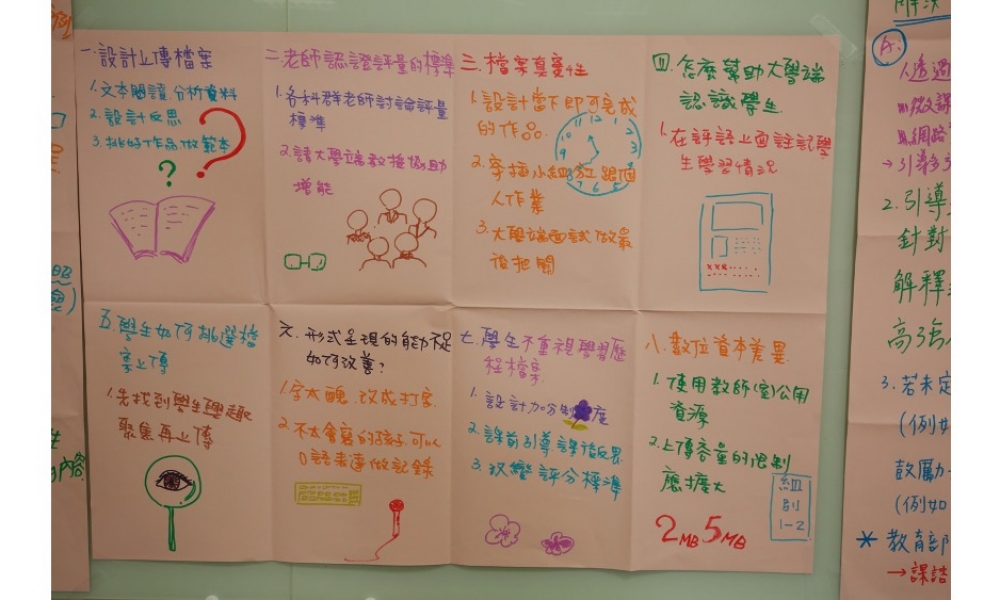 一、設計上傳檔案
1.文本閱讀分析資料
2.設計反思
3.挑好作品做範本
二老師認證評量的標準
1.各科群老師討論評量
標準
2.請大學端教授協助
增能
三.檔案真實性
1.設計當下即可完成
的作品.
2.穿插小組
人作業
3.大學端面試做最
後把關
四.怎麼幫助大學端
認識學生.
1.在評語上面註記學
生學習情況
五.學生如何挑選檔
案上傳
1.先找到學生興趣
聚焦再上傳
六.形式呈現的能力不足
如何改善?
1.字太醜,改成打字.
2.不太會寫的孩子.可以
口語表達做記錄
七.學生不重視學習歷
程檔案.
1.設計加分制度
2.課前引導.課後反思
3.改變評分標準
八.數位資本差異.
1.使用教師(室)公用
資源
2.上傳容量的限制
應擴大
2MB 5MB
組
別
1-2
A.
1.透過
→引導
2.引導
針對
解釋
高強
3.若未定
(例如
鼓勵
(例如
*教育部
→課諮
內容